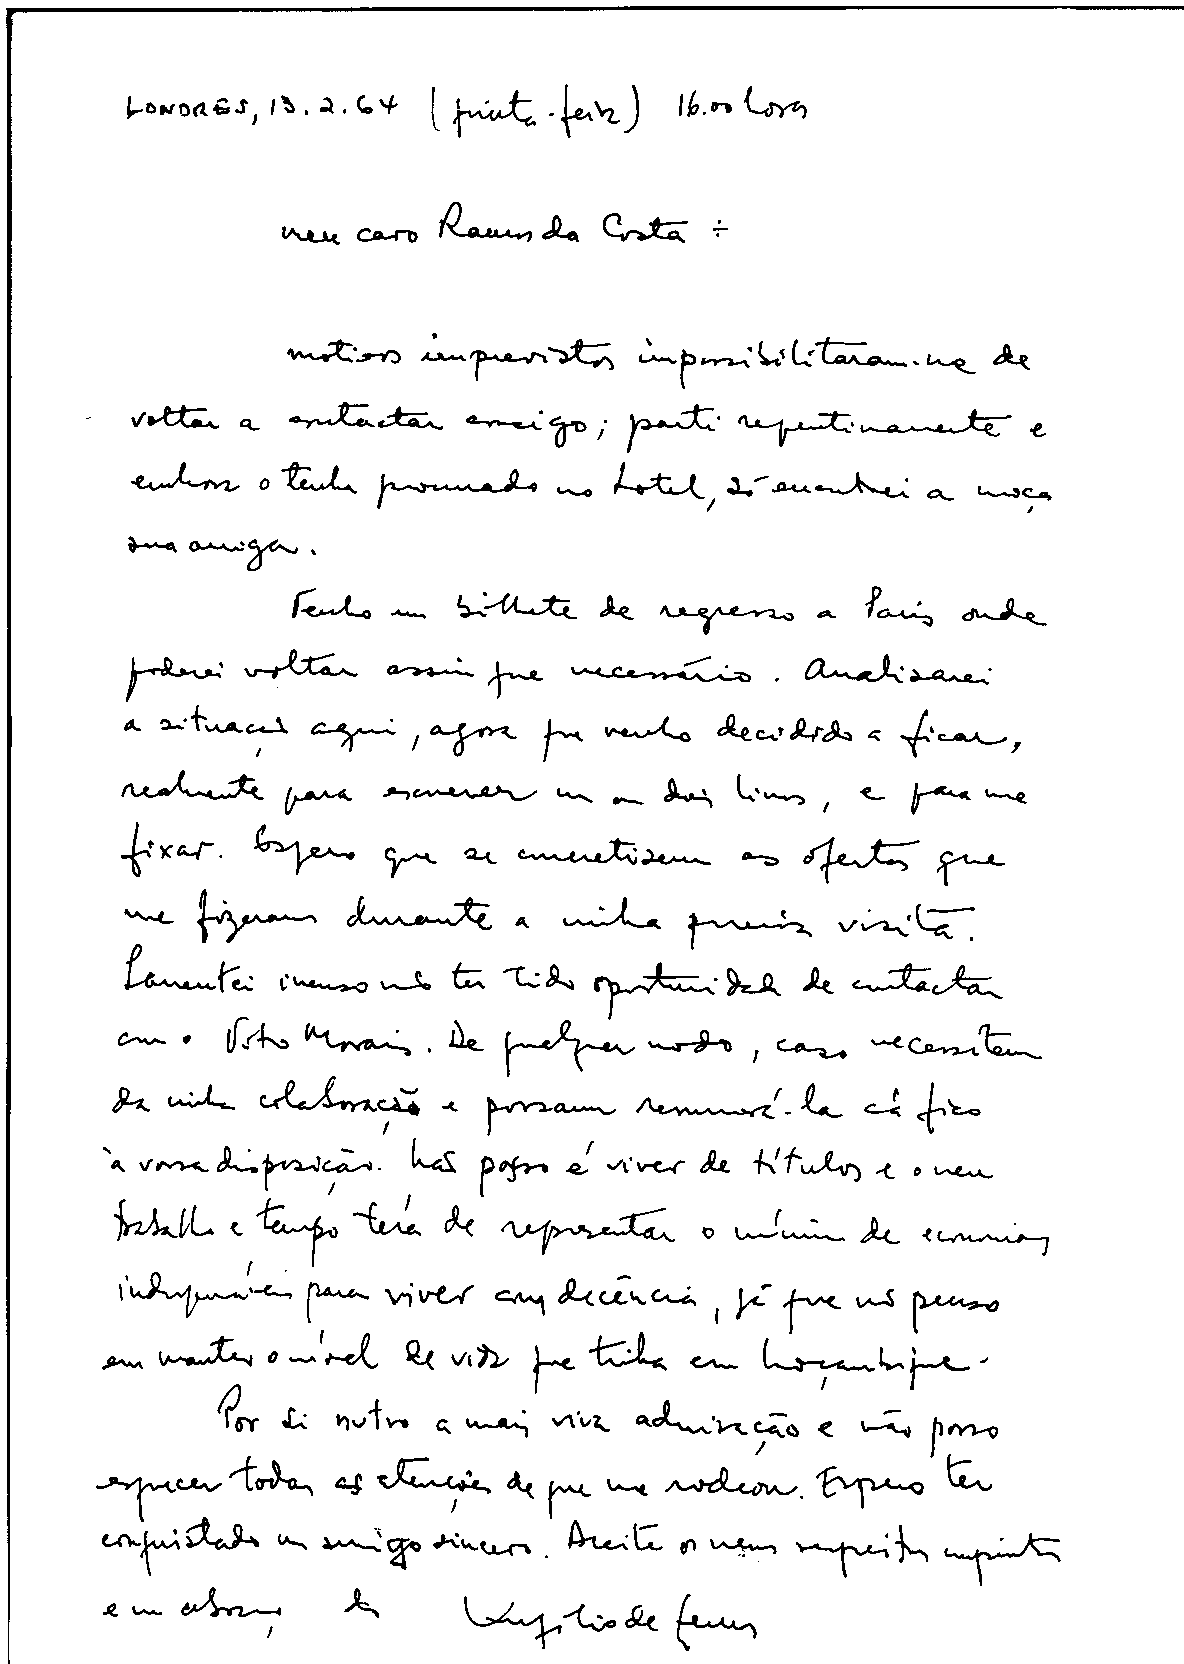 LONDRES, 13.2.64 (quinta-feira) 16.00 horas
meu caro Ramos da Costa :
motivos imprevistos impossibilitaram-me de
voltar a contactar consigo; parti repentinamente e
embora o tenha procurado no hotel, só encontrei a moça
sua amiga.
Tenho um bilhete de regresso a Paris onde
poderei voltar assim que necessário. Analisarei
a situação aqui, agora que venho decidido a ficar,
realmente para escrever um ou dois livros, e para me
fixar. Espero que se concretizem as ofertas que
me fizeram durante a minha primeira visita.
Lamentei imenso não ter tido oportunidade de contactar
com o Vitor Morais. De qualquer modo, caso necessitem
da minha colaboração e possam remunerá-la cá fico
à vossa disposição. Não posso é viver de títulos e o meu
trabalho e tempo terá de representar o mínimo de economias
indispensáveis para viver com decência, já que não penso
em manter o nível de vida que tinha em Moçambique.
Por si nutro a mais viva admiração e não posso
esquecer todas as atenções de que me rodeou. Espero ter
conquistado um amigo sincero. Aceite os meus respeitos
e um abraço do Virgílio de Lemos